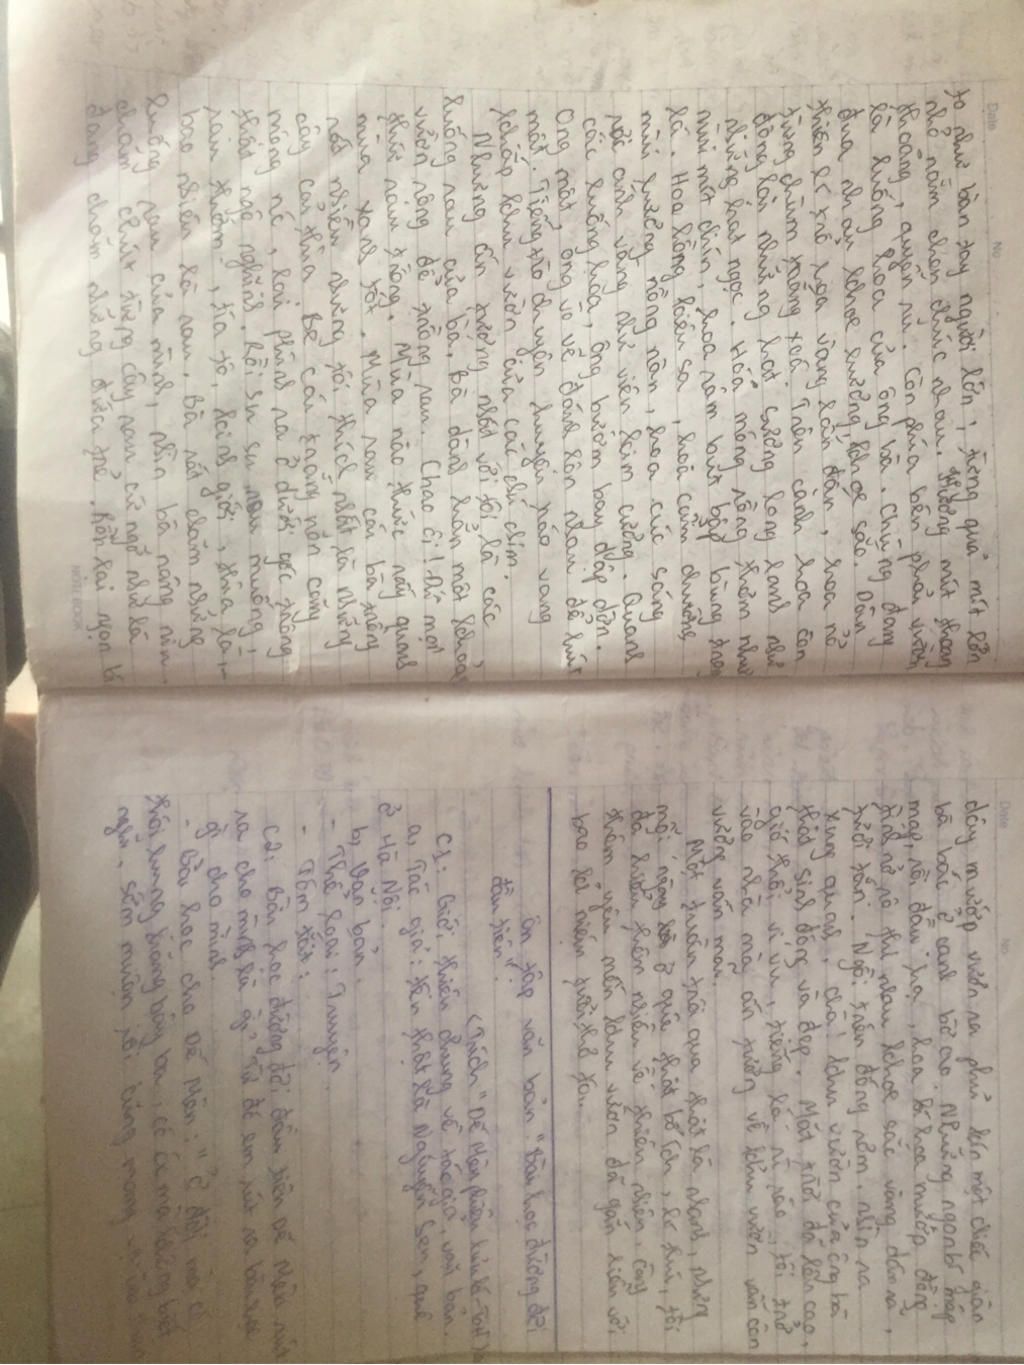 Date No
to như bàn tay người lớn, từng quả mít lớn
nhỏ nằm chen chúc nhau. Hương mít thoang
thoảng, quyến rũ. Còn phía bên phải vườn
là luống hoa của ông bà. Chúng đang
đua nhau khoe hương, khoe sắc. Dàn
thiên lí trổ hoa vàng lan dần, hoa nở
từng chùm trong Trên cánh hoa còn
đọng lại những hạt sương long lanh như
những hạt ngọc. Hoa móng rồng thơm như
mùi mít chín, hoa râm bụt đỏ bừng trong
lá. Hoa hồng kiêu sa, hoa cẩm chướng
mùi hương nồng nàn, hoa cúc sáng
rời ánh vàng như viên kim cương. Quanh
các luống hoa, ông bướm bay dập dờn.
Ong mật, ong vò vẽ đánh lộn nhau để hút
mật. Tiếng trò chuyện huyên náo vang
khắp khu vườn của các chú chim.
Nhưng ấn tượng nhất với tôi là các
luống rau của bà. Bà dành hẳn một khoảng
vườn rộng để trồng rau. Chao ôi! Đủ mọi
thức rau trồng. Mùa nào thức nấy quanh
mùa xanh tốt. Mùa rau cải bà trồng
rất nhiều nhưng tôi thích nhất là những
cây cải thìa. Bẹ cải trắng nõn căng
mỏng nó, lại phình ra ở dưới gốc trông
thật ngộ nghĩnh. Rồi su su, rau muống,
rau thơm, tía tô, kinh giới, thìa là,...
bao nhiêu là rau. Bà rất chăm những
luống rau của mình, nhìn bà nâng niu
chăm chút từng cây rau cứ ngỡ như là
đang chăm những đứa trẻ. Rồi lại ngọn bí
NOTEBOOK
Date No
dây mướp vươn ra phủ kín một chiếc giàn
bà bắc ở cạnh bờ ao. Những ngọn bí mập
mạp, rồi đậu hoa, hoa bí hoa mướp đồng
tình nở rộ thi nhau khoe sắc vàng đón ra,
tươi tắn. Ngồi trên đống rơm, nhìn ra
xung quanh, chà! khu vườn của ông bà
thật sinh động và đẹp. Mặt trời đã lên cao,
gió thổi vi vu, tiếng lá rì rào, tôi trở
vào nhà mà ấn tượng về khu vườn vẫn còn
vương vấn mãi.
Một tuần trôi qua thật là nhanh, những
mỗi ngày ở quê thật bổ ích, lí thú, tôi
đã hiểu thêm nhiều về thiên nhiên, càng
thêm yêu mến khu vườn đã gắn liền với
bao kỉ niệm tuổi thơ tôi.
Ôn tập văn bản: "Bài học đường đời
đầu tiên".
(Trích "Dế Mèn phiêu lưu kí - Tô H
C1: Giới thiệu chung về tác giả, văn bản.
a, Tác giả: tên thật là Nguyễn Sen, quê
ở Hà Nội.
b, Văn bản.
- Thể loại: Truyện.
- Tóm tắt:
C2: Bài học đường đời đầu tiên Dế Mèn rút
ra cho mình là gì, từ đó em rút ra bài học
gì cho mình.
- Bài học cho Dế Mèn: "ở đời mà có
thói hung hăng bậy bạ, có óc mà không biết
nghĩ, sớm muộn rồi cũng mang